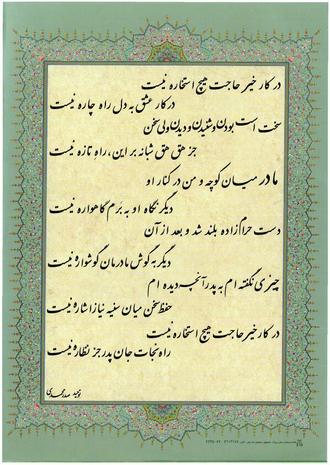 در کار خیر حاجت هیچ استخاره نیست
در کار عشق به دل راه چاره نیست
سخت است بودن و شنیدن و دیدن ولی سخن
جز هق هق شبانه بر این، راه تازه نیست
مادر میان کوچه و من در کنار او
دیگر نگاه او به برم گاهواره نیست
دست حرامزاده بلند شد و بعد از آن
دیگر به گوش مادرمان گوشواره نیست
چیزی نگفته ام به پدر آنچه دیده ام
حفظ سخن میان سینه نیاز اشاره نیست
در کار خیر حاجت هیچ استخاره نیست
راه نجات جان پدر جز نظاره نیست